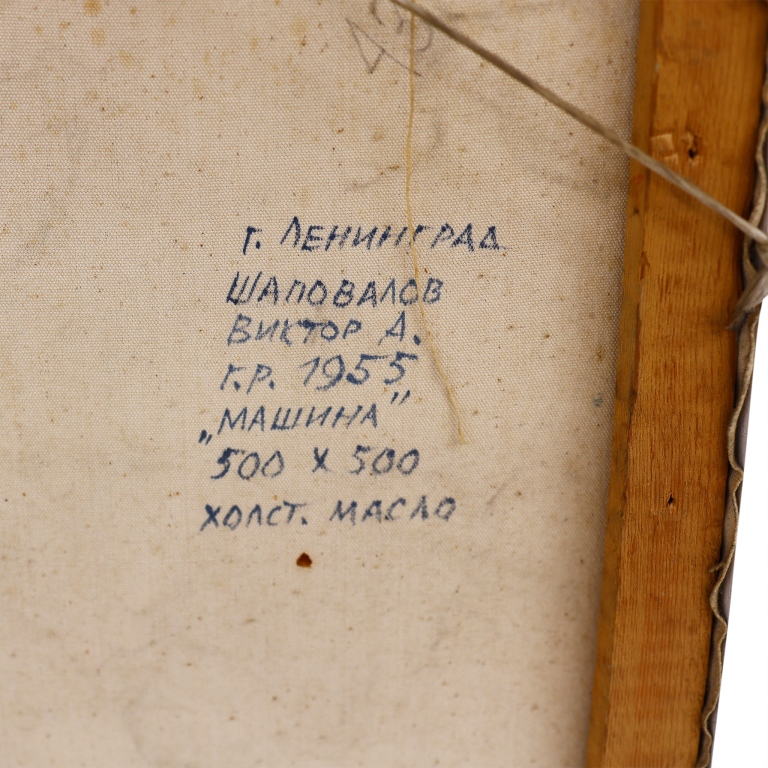 г. ЛЕНИНГРАД
ШАПОВАЛОВ
ВИКТОР А.
г.р. 1955
„МАШИНА"
500 х 500
ХОЛСТ. МАСЛО